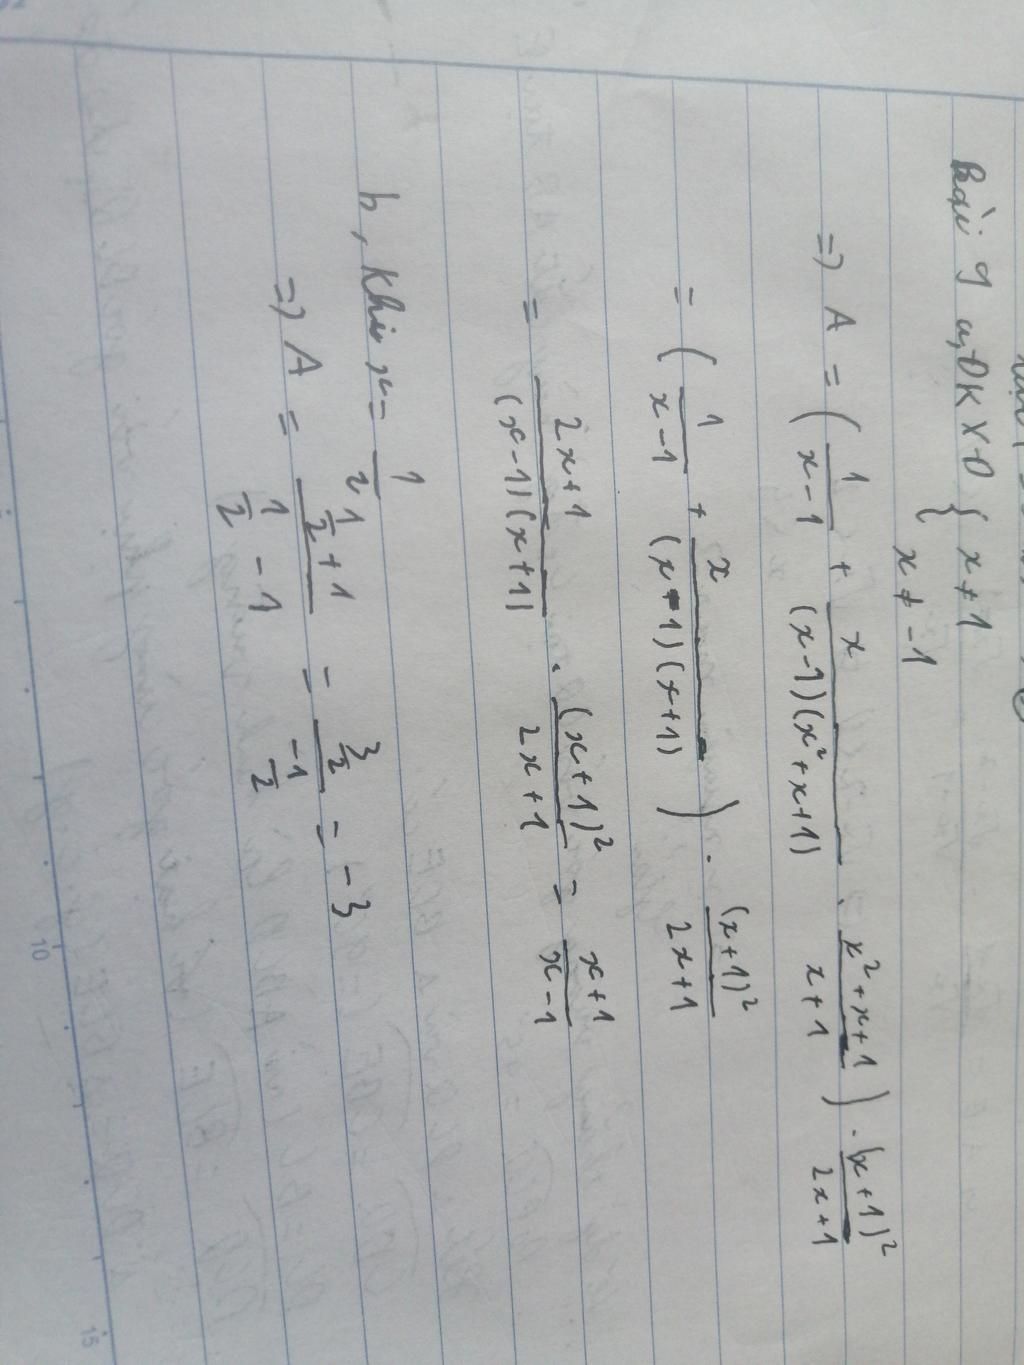 Bài 9 a, ĐKXĐ { x ≠ 1
{ x ≠ -1
=> A = ( 1/(x-1) + x/((x-1)(x²+x+1)) . (x²+x+1)/(x+1) ) . (x+1)²/(2x+1)
= ( 1/(x-1) + x/((x-1)(x+1)) ) . (x+1)²/(2x+1)
= (2x+1)/((x-1)(x+1)) . (x+1)²/(2x+1) = (x+1)/(x-1)
b, Khi x = 1/2
=> A = (1/2+1)/(1/2-1) = (3/2)/(-1/2) = -3
10
15